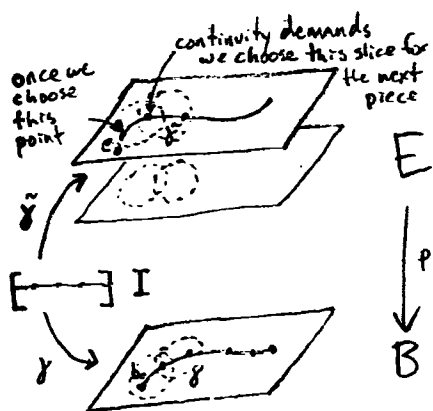 continuity demands
we choose this slice for
the next
piece
once we
choose
this
point
e₀
γ̃
E
γ̃
p
I
γ
B
b
γ